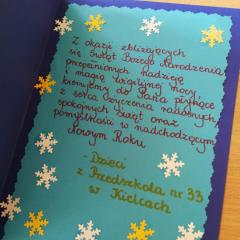 Z okazji zbliżających
się Świąt Bożego Narodzenia
przepełnionych nadzieją
i magią wigilijnej nocy,
kierujemy do Państwa płynące
z serca życzenia radosnych,
spokojnych Świąt oraz
pomyślności w nadchodzącym
Nowym Roku
- Dzieci
z Przedszkola nr 33
w Kielcach